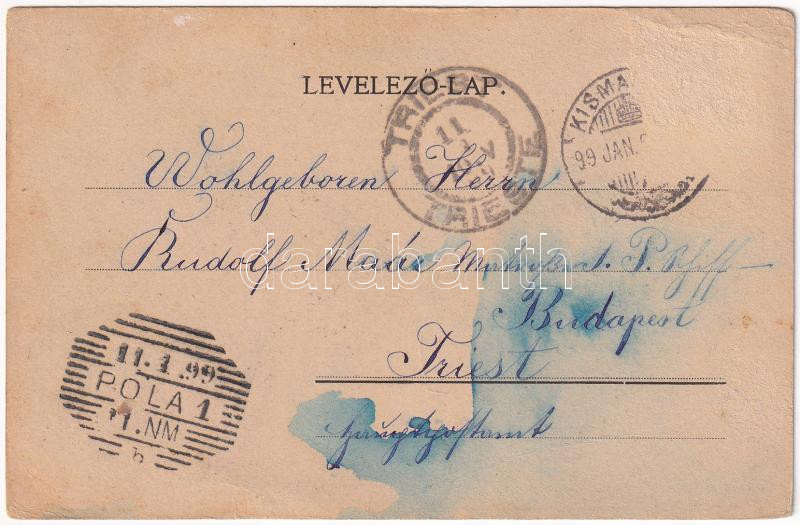 LEVELEZŐ-LAP.
TRIEST
11
TRIESTE
KISMA
99 JAN.
Wohlgeboren Herrn
Rudolf Mader Matrose P. Schiff
Budapest
Triest
Hauptpostamt
11.1.99
POLA 1
11.NM
b
darabanth